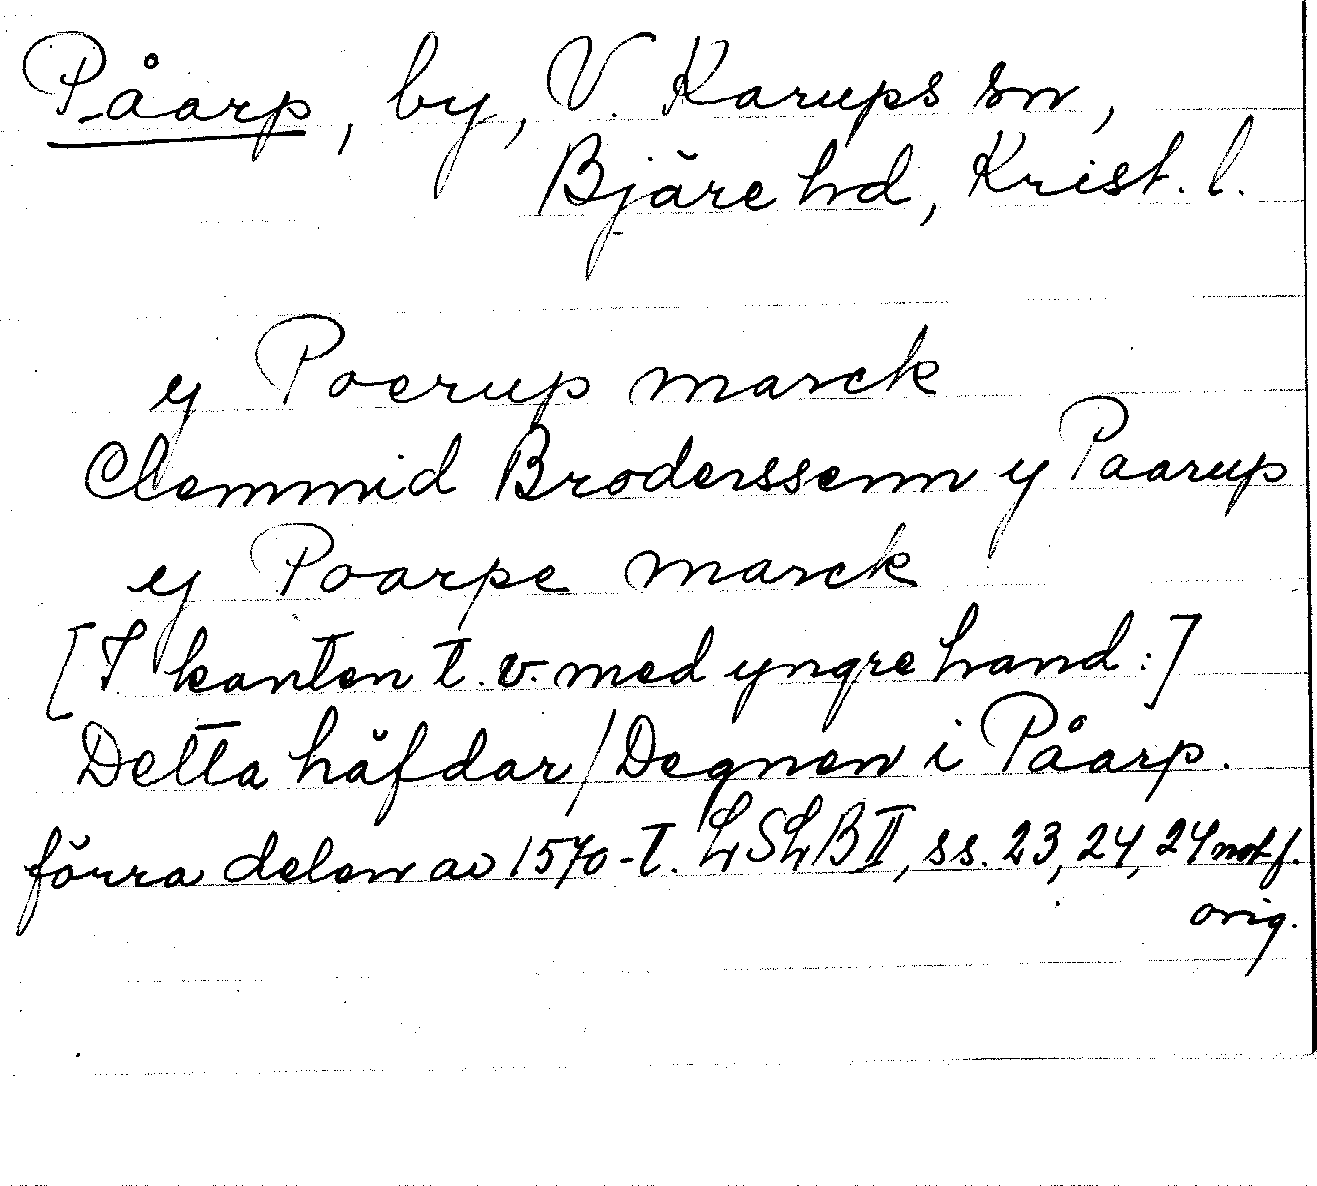 Påarp, by, V. Karups sn,
Bjäre hd, Krist. l.
y Poerup marck
Clemmid Broderssenn y Paarup
y Poarpe marck
[I kanten t. v. med yngre hand:]
Detta häfdar/Degnen i Påarp.
förra delen av 1570-t. LSLB II, ss. 23, 24, 24 not f.
orig.